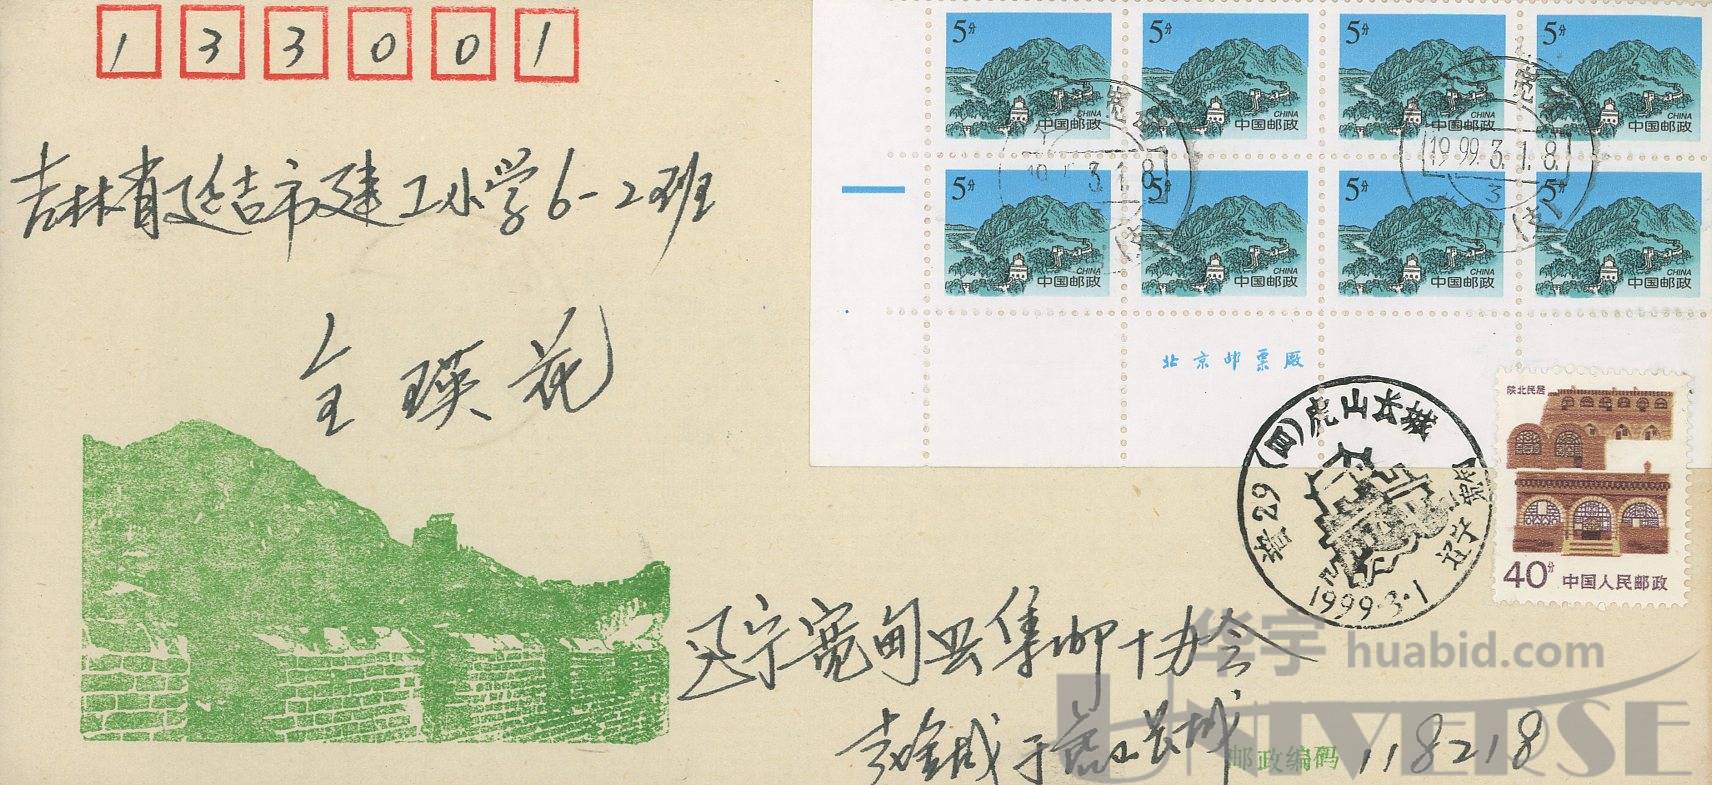 133001
吉林省延吉市建工小学6-2班
全瑛花
5分 5分 5分 5分
CHINA CHINA CHINA CHINA
中国邮政 中国邮政 中国邮政 中国邮政
1999.3.1.8
5分 5分 5分 5分
CHINA CHINA CHINA CHINA
中国邮政 中国邮政 中国邮政 中国邮政
北京邮票厂
陕北民居
40分 中国人民邮政
普29(四)虎山长城
辽宁 宽甸
1999·3·1
辽宁宽甸县集邮协会
金城于虎山长城
邮政编码 118218
华宇 huabid.com
UNIVERSE